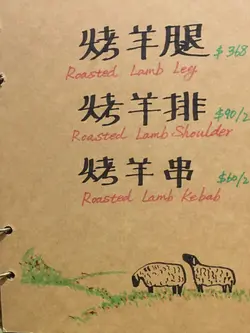 烤羊腿 $368
Roasted Lamb Leg
烤羊排 $90/2
Roasted Lamb Shoulder
烤羊串 $60/2
Roasted Lamb Kebab